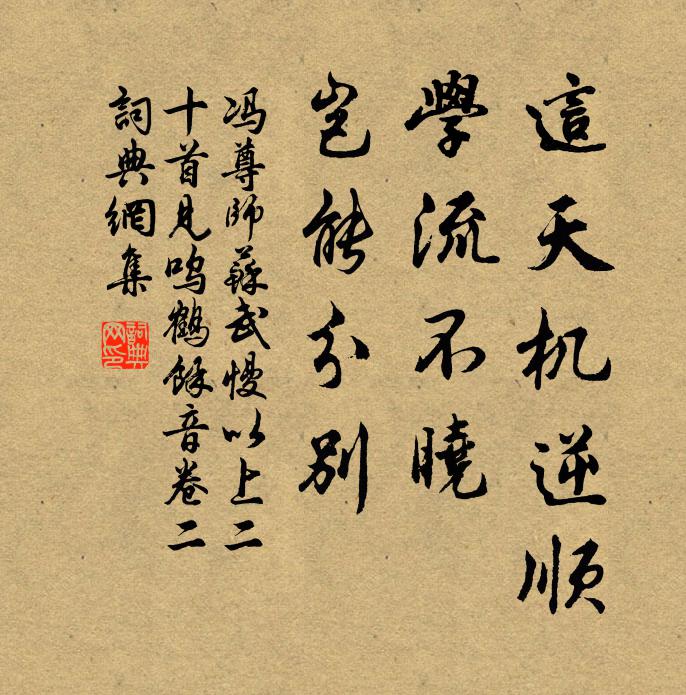 這天机逆順
學流不曉
岂能分別
冯尊师蘇武慢以上二
十首見鸣鶴餘音卷二
詞典網集
詞典
网印